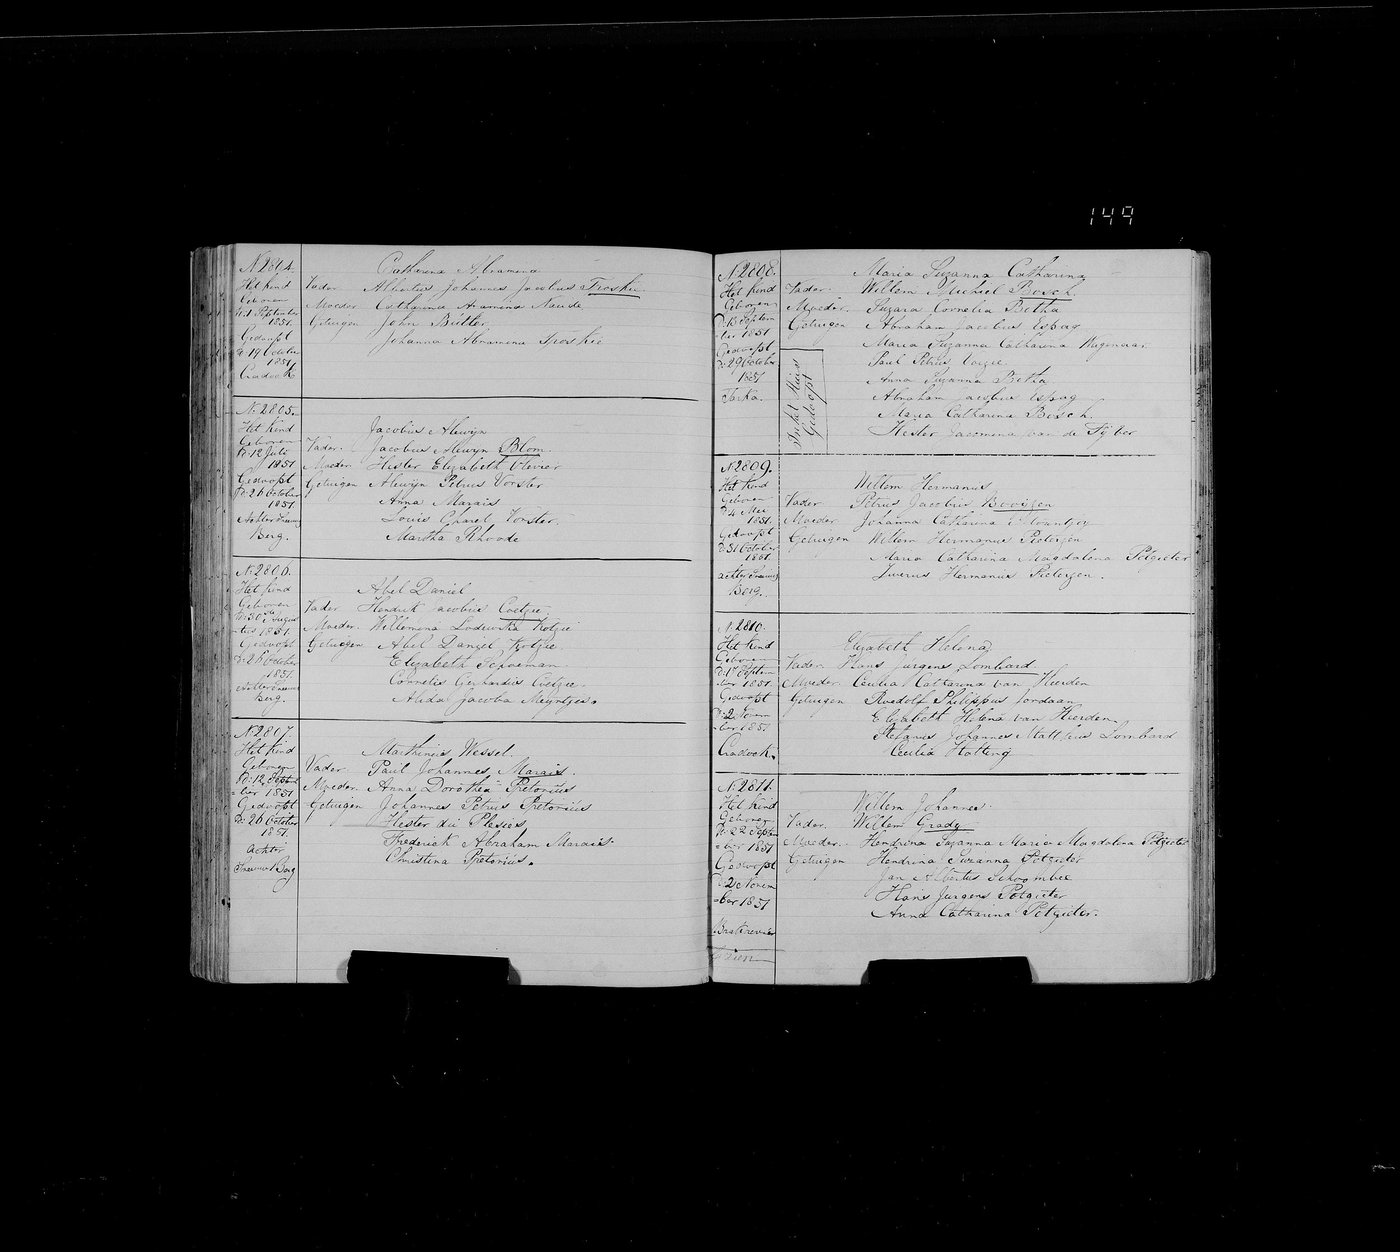 149
N 2804.
Het kind
Geboren
D: 1 September
1851.
Gedoopt
D: 19 October
1851.
Cradock
Catharina Abramina
Vader Albertus Johannes Jacobus Troskie
Moeder Catharina Aramina Naude
Getuigen John Butler
Johanna Abramina Troskie
N. 2805.
Het kind
Geboren
D: 12 Juli
1851
Gedoopt
D: 26 October
1851.
Achter Sneeuw
Berg.
Jacobus Alewyn
Vader. Jacobus Alewyn Blom.
Moeder Hester Elizabeth Olevier
Getuigen Alewyn Petrus Vorster
Anna Marais
Louis Charel Vorster
Martha Rhoode
N. 2806.
Het kind
Geboren
D: 30 August
-tus 1851
Gedoopt
D: 26 October
1851.
Achter Sneeuw
Berg.
Abel Daniel
Vader Hendrik Jacobus Coetzee
Moeder Willemina Lodewika Kotzee
Getuigen Abel Daniel Kotzee.
Elizabeth Schoeman
Cornelis Gerhardus Coetzee.
Alida Jacoba Meyntjes.
N 2807.
Het kind
Geboren
D: 12 Septem
-ber 1851
Gedoopt
D: 26 October
1851.
Achter
Sneeuw Berg
Marthinus Wessel.
Vader. Paul Johannes Marais.
Moeder Anna Dorothea Pretorius
Getuigen Johannes Petrus Pretorius
Hester du Plesies
Frederick Abraham Marais
Christina Pretorius.
N 2808.
Het kind
Geboren
D: 13 Septem
-ber 1851
Gedoopt
D: 29 October
1851
Tarka.
In het Huis
Gedoopt
Maria Suzanna Catharina
Vader. Willem Michiel Bosch.
Moeder. Suzara Cornelia Botha
Getuigen Abraham Jacobus Espag
Maria Suzanna Catharina Wagenaar
Paul Petrus
Anna Suzanna Botha
Abraham Jacobus Espag
Maria Catharina Bosch.
Hester Jacomina van de Tyber
N 2809.
Het kind
Geboren
D: 4 Mei
1851.
Gedoopt
D: 31 October
1851.
achter Sneeuw
Berg.
Willem Hermanus
Vader Petrus Jacobus Booyzen
Moeder Johanna Catharina Mountjoy
Getuigen Willem Hermanus Pieterzen
Maria Catharina Magdalena Potgieter
Hermanus Pieterzen.
N. 2810.
Het kind
Geboren
D: 1 Septem
-ber 1851.
Gedoopt
D: 2 Novem
-ber 1851
Cradock.
Elizabeth Helena
Vader Hans Jurgens Lombard
Moeder. Cecilia Catharina van Heerden
Getuigen Rudolf Philippus Jordaan
Elizabeth Helena van Heerden.
Stefanus Johannes Matthus Lombard
Cecilia Hatting
N. 2811.
Het kind
Geboren
D: 22 Septem
-ber 1851
Gedoopt
D: 2 Novem
-ber 1851
Brakrevier
Willem Johannes.
Vader. Willem Grady
Moeder. Hendrina Suzanna Maria Magdalena Potgieter
Getuigen Hendrina Suzanna Potgieter
Jan Albertus Schoombee
Hans Jurgens Potgieter
Anna Catharina Potgieter.